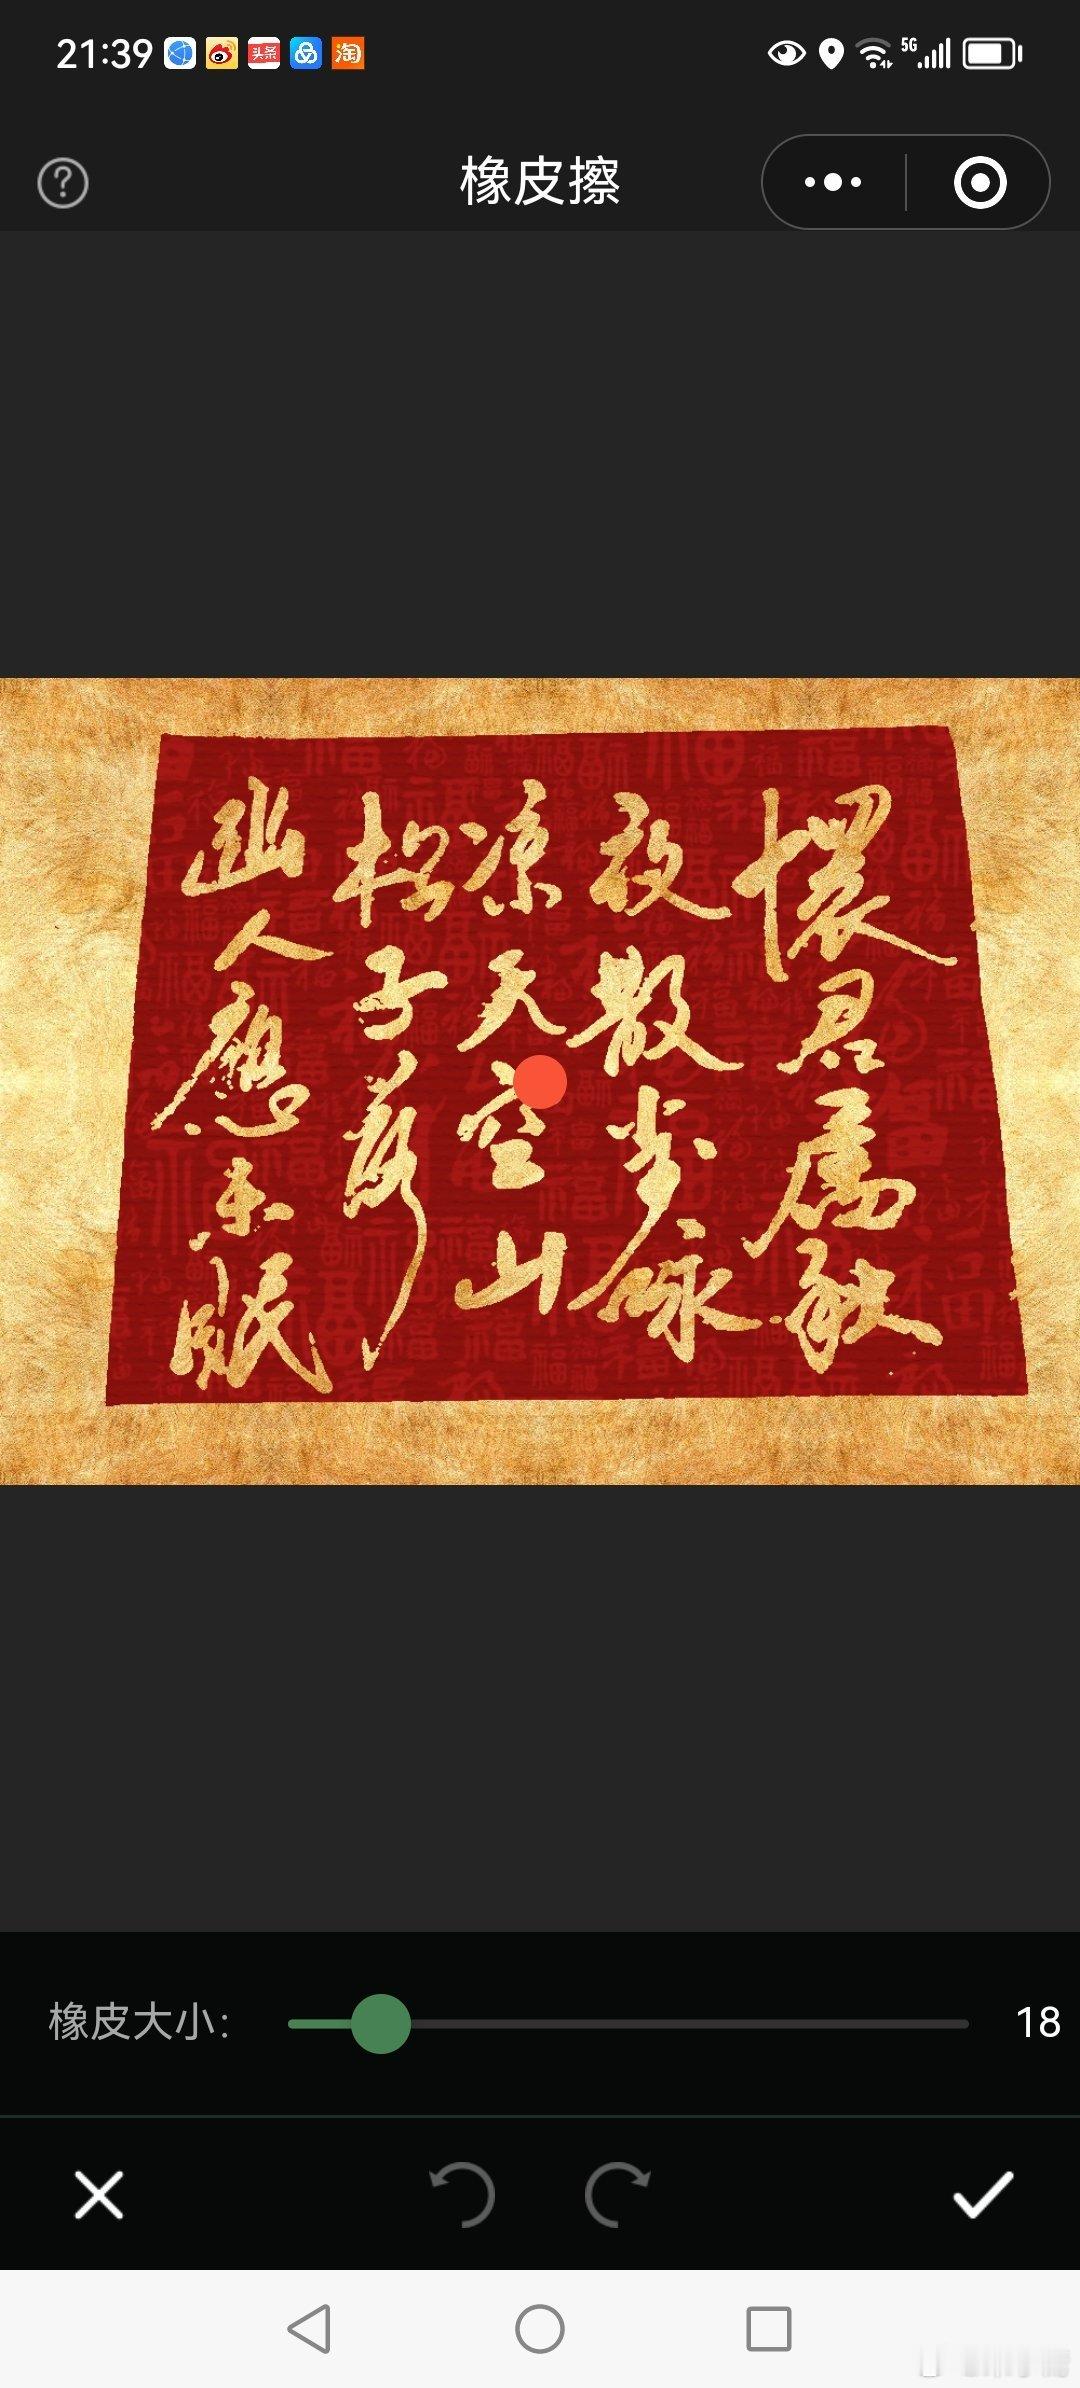 21:39
头条
淘
5G
橡皮擦
懷君属秋
夜散步咏
凉天空山
松子落
幽人應未眠
橡皮大小：
18